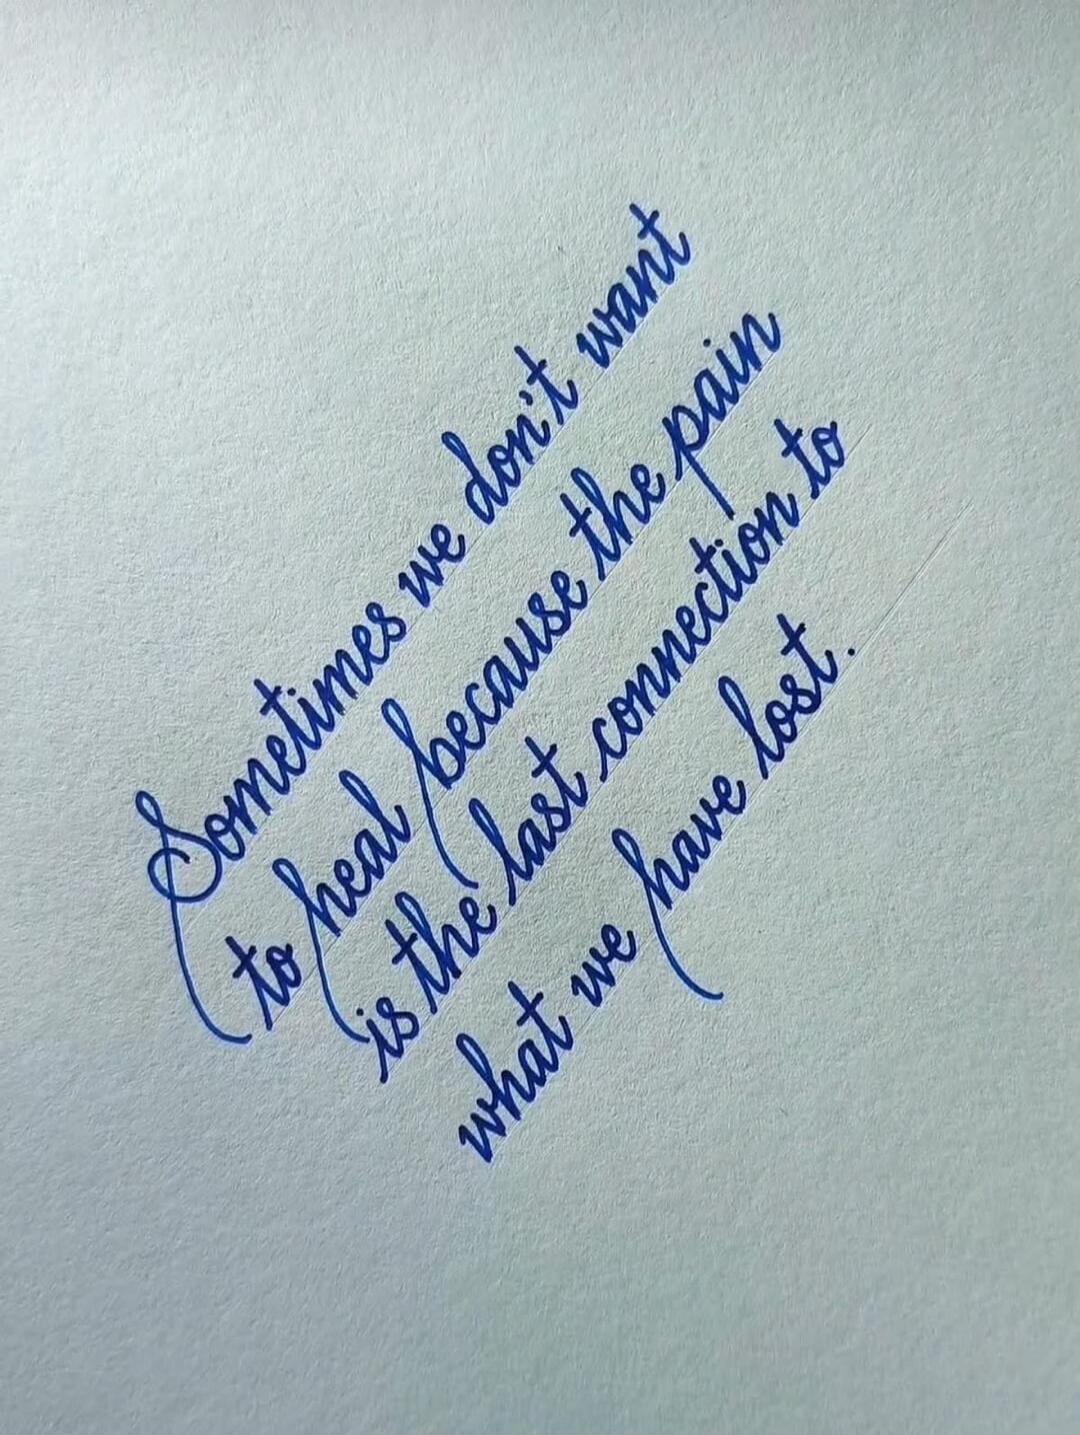 Sometimes we don't want
to heal because the pain
is the last connection to
what we have lost.